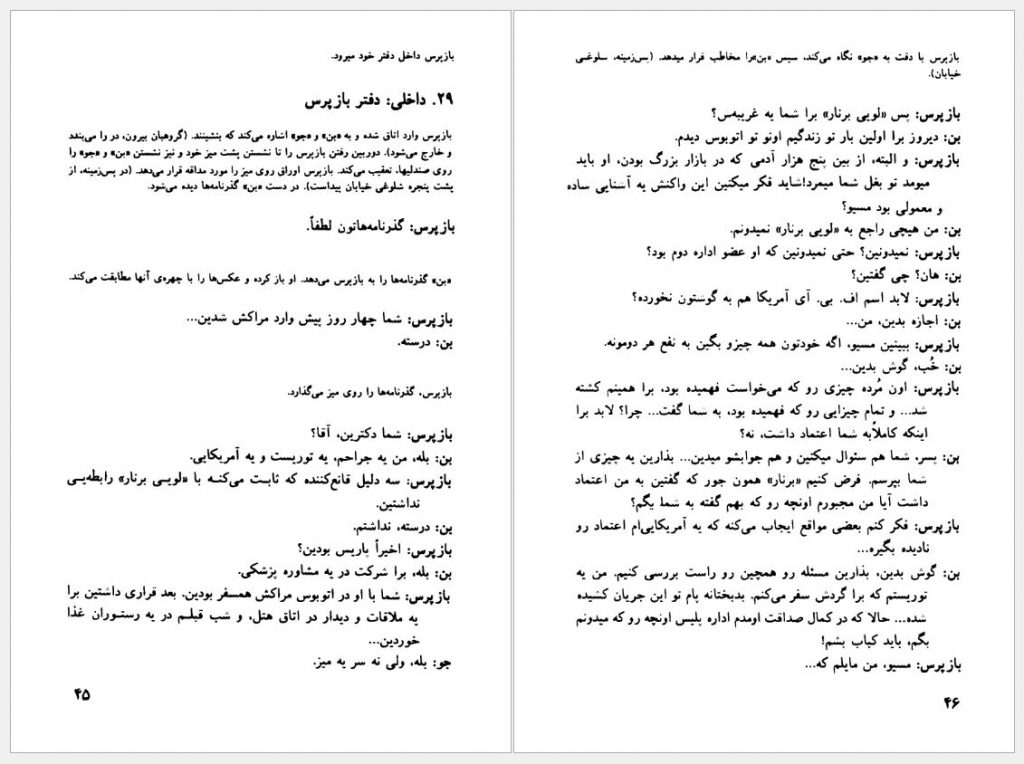 بازپرس داخل دفتر خود میرود.
۲۹. داخلی: دفتر بازپرس
بازپرس وارد اتاق شده و به «بن» و «جو» اشاره می‌کند که بنشینند. (گروهبان بیرون، در را می‌بندد
و خارج می‌شود). دوربین رفتن بازپرس را تا نشستن پشت میز خود و نیز نشستن «بن» و «جو» را
روی صندلیها، تعقیب می‌کند. بازپرس اوراق روی میز را مورد مداقه قرار می‌دهد. (در پس‌زمینه، از
پشت پنجره شلوغی خیابان پیداست). در دست «بن» گذرنامه‌ها دیده می‌شود.
بازپرس: گذرنامه‌هاتون لطفاً.
«بن» گذرنامه‌ها را به بازپرس می‌دهد. او باز کرده و عکس‌ها را با چهره‌ی آنها مطابقت می‌کند.
بازپرس: شما چهار روز پیش وارد مراکش شدین...
بن: درسته.
بازپرس، گذرنامه‌ها را روی میز می‌گذارد.
بازپرس: شما دکترین، آقا؟
بن: بله، من یه جراحم، یه توریست و یه آمریکایی.
بازپرس: سه دلیل قانع‌کننده که ثابت می‌کنه با «لویی برنار» رابطه‌یی
نداشتین.
بن: درسته، نداشتم.
بازپرس: اخیراً پاریس بودین؟
بن: بله، برا شرکت در یه مشاوره پزشکی.
بازپرس: شما با او در اتوبوس مراکش همسفر بودین. بعد قراری داشتین برا
یه ملاقات و دیدار در اتاق هتل، و شب قبلم در یه رستوران غذا
خوردین...
جو: بله، ولی نه سر یه میز.
۴۵
بازپرس با دقت به «جو» نگاه می‌کند، سپس «بن»را مخاطب قرار میدهد. (پس‌زمینه، سلوغی
خیابان).
بازپرس: پس «لویی برنار» برا شما یه غریبه‌س؟
بن: دیروز برا اولین بار تو زندگیم اونو تو اتوبوس دیدم.
بازپرس: و البته، از بین پنج هزار آدمی که در بازار بزرگ بودن، او باید
میومد تو بغل شما میمرد!شاید فکر میکنین این واکنش یه آشنایی ساده
و معمولی بود مسیو؟
بن: من هیچی راجع به «لویی برنار» نمیدونم.
بازپرس: نمیدونین؟ حتی نمیدونین که او عضو اداره دوم بود؟
بن: هان؟ چی گفتین؟
بازپرس: لابد اسم اف. بی. آی آمریکا هم به گوشتون نخورده؟
بن: اجازه بدین، من...
بازپرس: ببینین مسیو، اگه خودتون همه چیزو بگین به نفع هر دومونه.
بن: خُب، گوش بدین...
بازپرس: اون مُرده چیزی رو که می‌خواست فهمیده بود، برا همینم کشته
شد... و تمام چیزایی رو که فهمیده بود، به شما گفت... چرا؟ لابد برا
اینکه کاملاًبه شما اعتماد داشت، نه؟
بن: پسر، شما هم سئوال میکنین و هم جوابشو میدین... بذارین یه چیزی از
شما بپرسم. فرض کنیم «برنار» همون جور که گفتین به من اعتماد
داشت آیا من مجبورم اونچه رو که بهم گفته به شما بگم؟
بازپرس: فکر کنم بعضی مواقع ایجاب می‌کنه که یه آمریکایی‌ام اعتماد رو
نادیده بگیره...
بن: گوش بدین، بذارین مسئله رو همچین رو راست بررسی کنیم. من یه
توریستم که برا گردش سفر می‌کنم. بدبختانه پام تو این جریان کشیده
شده... حالا که در کمال صداقت اومدم اداره پلیس اونچه رو که میدونم
بگم، باید کباب بشم!
بازپرس: مسیو، من مایلم که...
۴۶